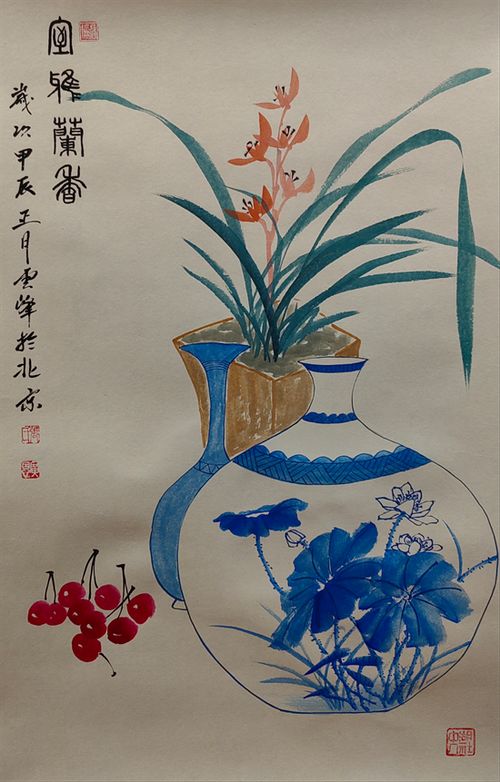 室雅蘭香
歲次甲辰正月雲峰於北京